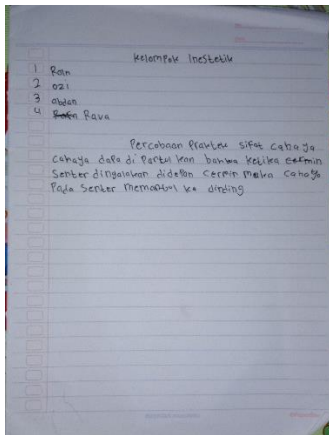 Kelompok Inestetik
1 Rain
2 ozi
3 abdan
4 Rava
Percobaan Praktek sifat cahaya
cahaya dapa di Partulkan bahwa ketika cermin
Senter dinyalakan didepan cermin maka cahaya
Pada Senter memantul ke dinding